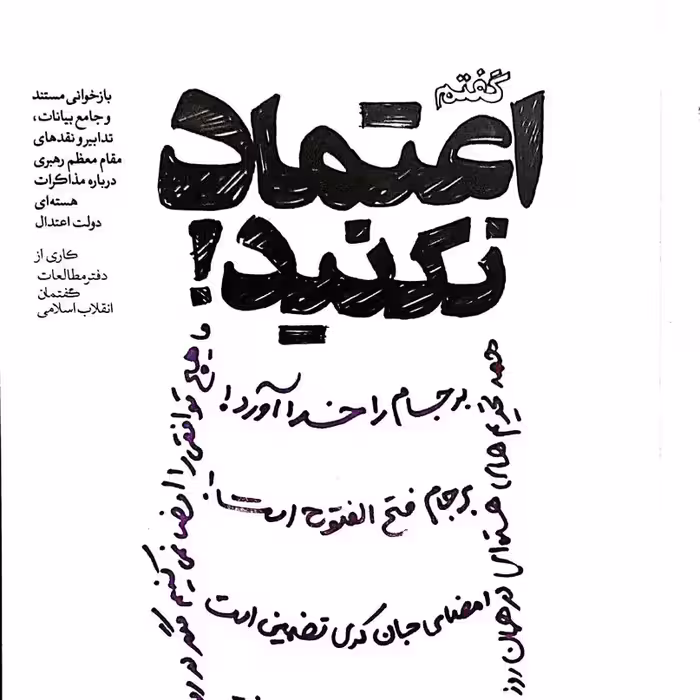 گفتم
اعتماد
نکنید!
بازخوانی مستند
و جامع بیانات،
تدابیر و نقدهای
مقام معظم رهبری
درباره مذاکرات
هسته‌ای
دولت اعتدال
کاری از
دفتر مطالعات
گفتمان
انقلاب اسلامی
برجام را خدا آورد!
برجام فتح الفتوح است!
امضای جان کری تضمین است
همه تحریم های هسته‌ای در همان روز
ما هیچ توافقی را امضا نمی کنیم مگر در